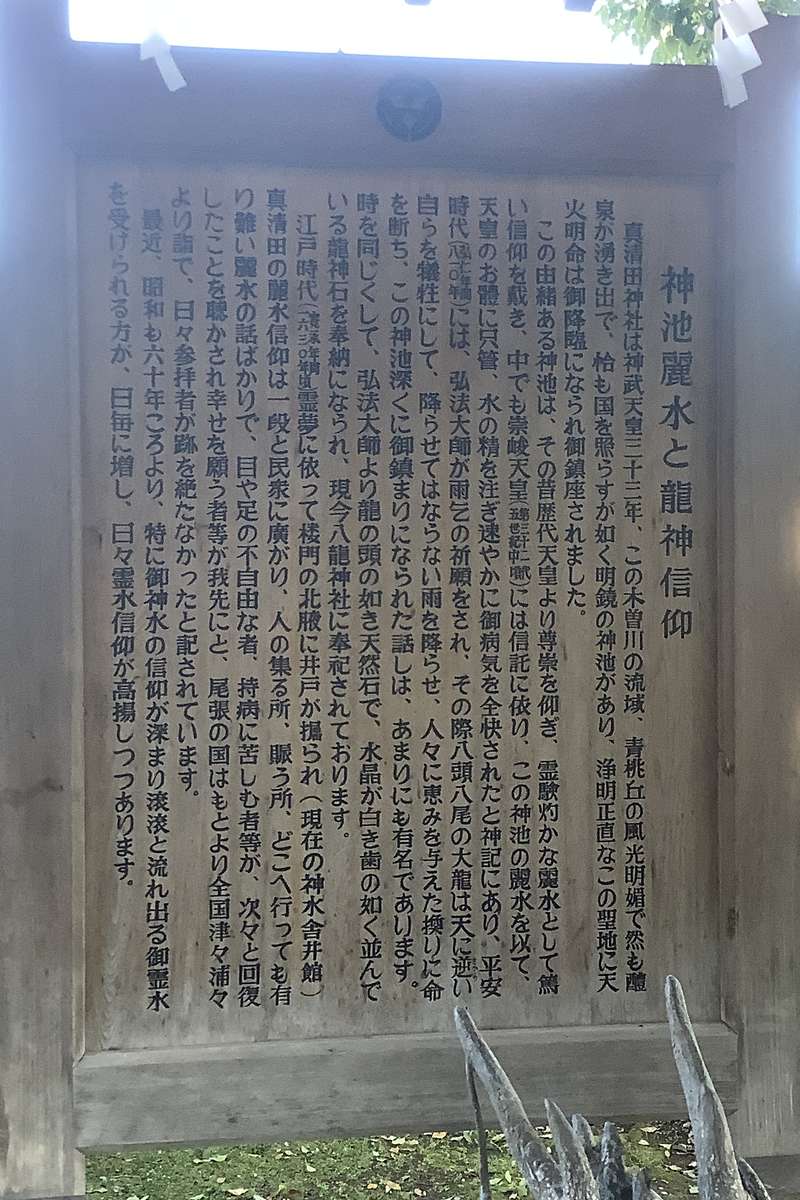 神池麗水と龍神信仰
真清田神社は神武天皇三十三年、この木曽川の流域、青桃丘の風光明媚で然も醴
泉が湧き出で、恰も国を照らすが如く明鏡の神池があり、浄明正直なこの聖地に天
火明命は御降臨になられ御鎮座されました。
この由緒ある神池は、その昔歴代天皇より尊崇を仰ぎ、霊験灼かな麗水として篤
い信仰を戴き、中でも崇峻天皇には信託に依り、この神池の麗水を以て、
天皇のお體に只管、水の精を注ぎ速やかに御病気を全快されたと神記にあり、平安
時代には、弘法大師が雨乞の祈願をされ、その際八頭八尾の大龍は天に逆い
自らを犠牲にして、降らせてはならない雨を降らせ、人々に恵みを与えた換りに命
を断ち、この神池深くに御鎮まりになられた話しは、あまりにも有名であります。
時を同じくして、弘法大師より龍の頭の如き天然石で、水晶が白き歯の如く並んで
いる龍神石を奉納になられ、現今八龍神社に奉祀されております。
江戸時代霊夢に依って楼門の北腋に井戸が掘られ(現在の神水舎井館)
真清田の麗水信仰は一段と民衆に廣がり、人の集る所、賑う所、どこへ行っても有
り難い麗水の話ばかりで、目や足の不自由な者、持病に苦しむ者等が、次々と回復
したことを聴かされ幸せを願う者等が我先にと、尾張の国はもとより全国津々浦々
より詣で、日々参拝者が跡を絶たなかったと記されています。
最近、昭和も六十年ころより、特に御神水の信仰が深まり滾滾と流れ出る御霊水
を受けられる方が、日毎に増し、日々霊水信仰が高揚しつつあります。